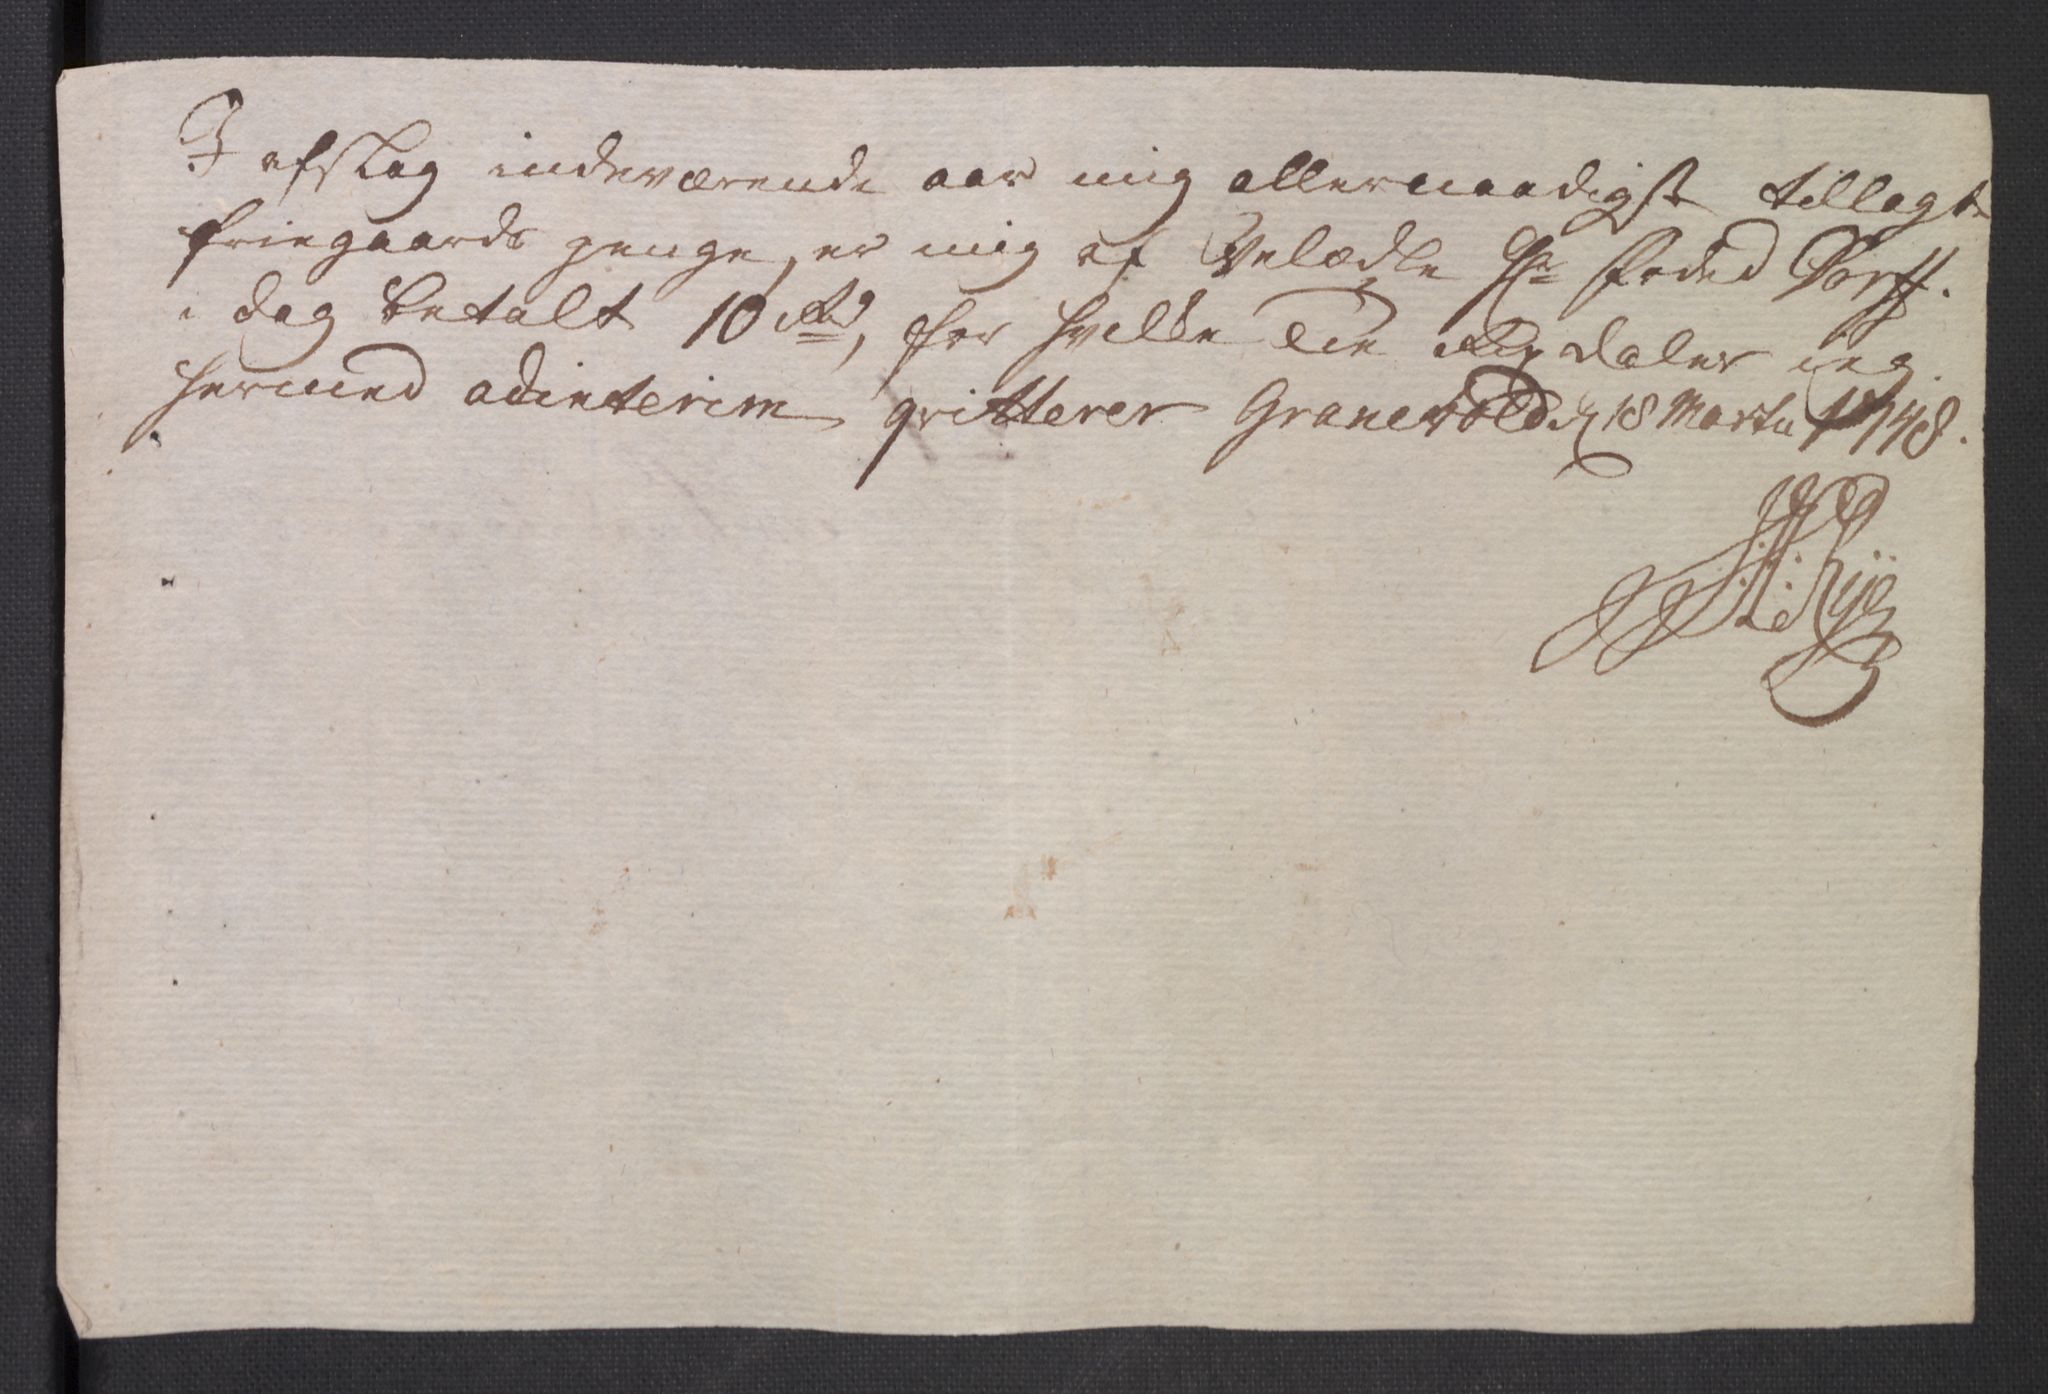 I afslag indeværende aar mig allernaadigst tillagte
friegaards penge, er mig af Velædle Hr foded Dorff.
i dag betalt 10 Rd, for hvilke Tie Rix daler ieg
hermed adinterim qvitterer Granevold d 18 Martii 1748.
Rye